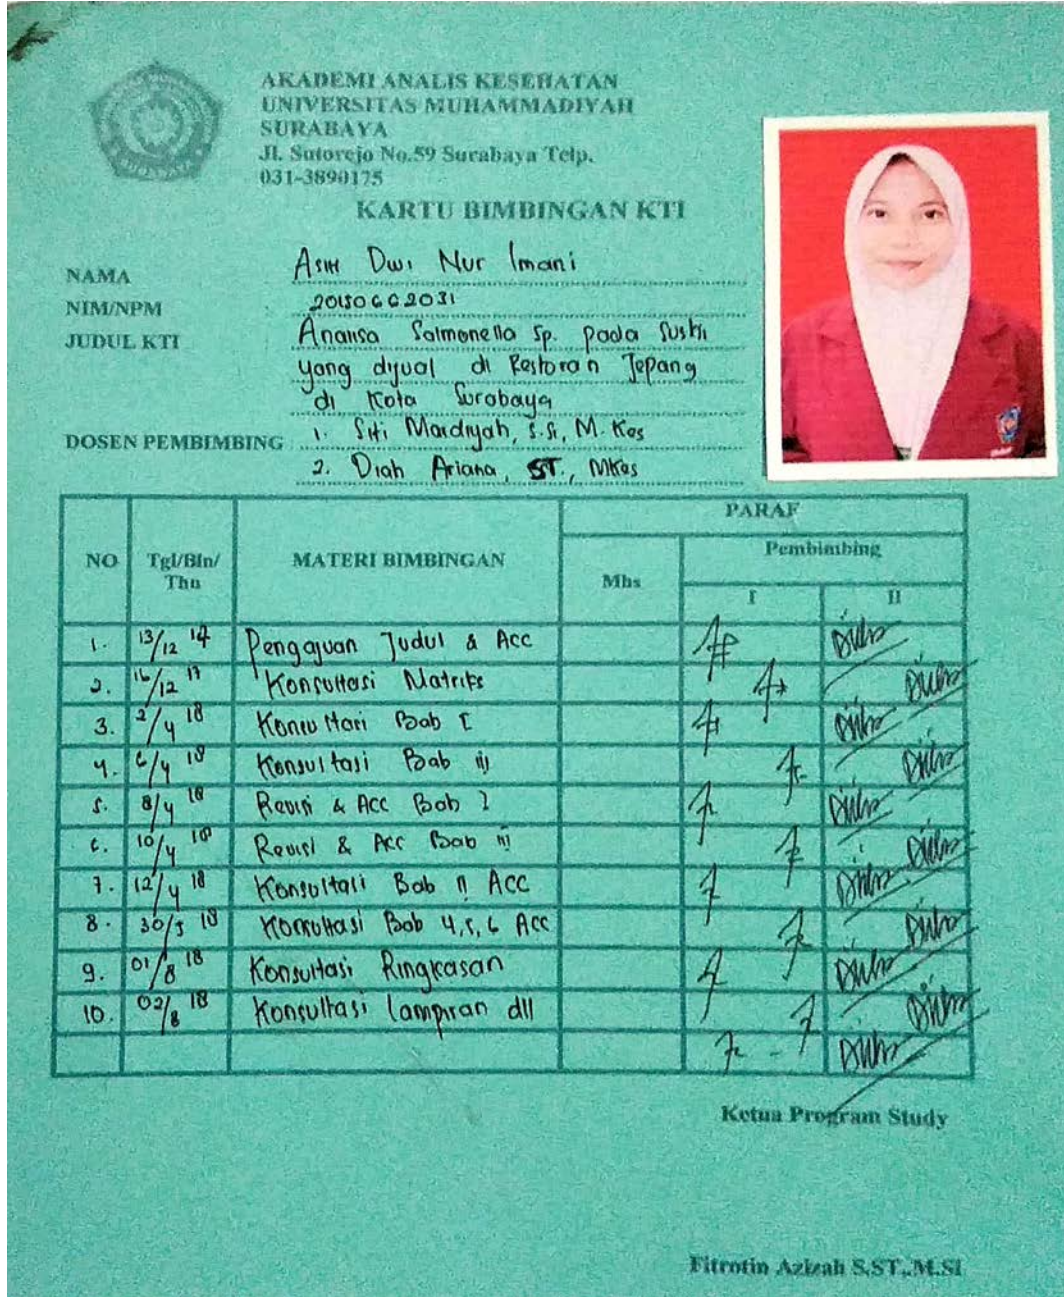 AKADEMI ANALIS KESEHATAN
UNIVERSITAS MUHAMMADIYAH
SURABAYA
Jl. Sutorejo No.59 Surabaya Telp.
031-3890175
KARTU BIMBINGAN KTI
NAMA : Asih Dwi Nur Imani
NIM/NPM : 20150662031
JUDUL KTI : Ananisa Salmonella Sp. pada Sushi
yang dijual di Restoran Jepang
di Kota Surabaya
DOSEN PEMBIMBING : 1. Siti Mardiyah, S.Si, M. Kes
2. Diah Ariana, ST., MKes
PARAF
NO Tgl/Bln/ MATERI BIMBINGAN Mhs Pembimbing
Thn
I II
1. 13/12 17 Pengajuan Judul & Acc
2. 16/12 17 Konsultasi Matriks
3. 2/4 18 Konsultasi Bab I
4. 6/4 18 Konsultasi Bab iii
5. 8/4 18 Revisi & Acc Bab I
6. 10/4 18 Revisi & Acc Bab iii
7. 12/4 18 Konsultasi Bab II Acc
8. 30/5 18 Konsultasi Bab 4, 5, 6 Acc
9. 01/8 18 Konsultasi Ringkasan
10. 02/8 18 Konsultasi Lampiran dll
Ketua Program Study
Fitrotin Azizah S.ST.,M.SI